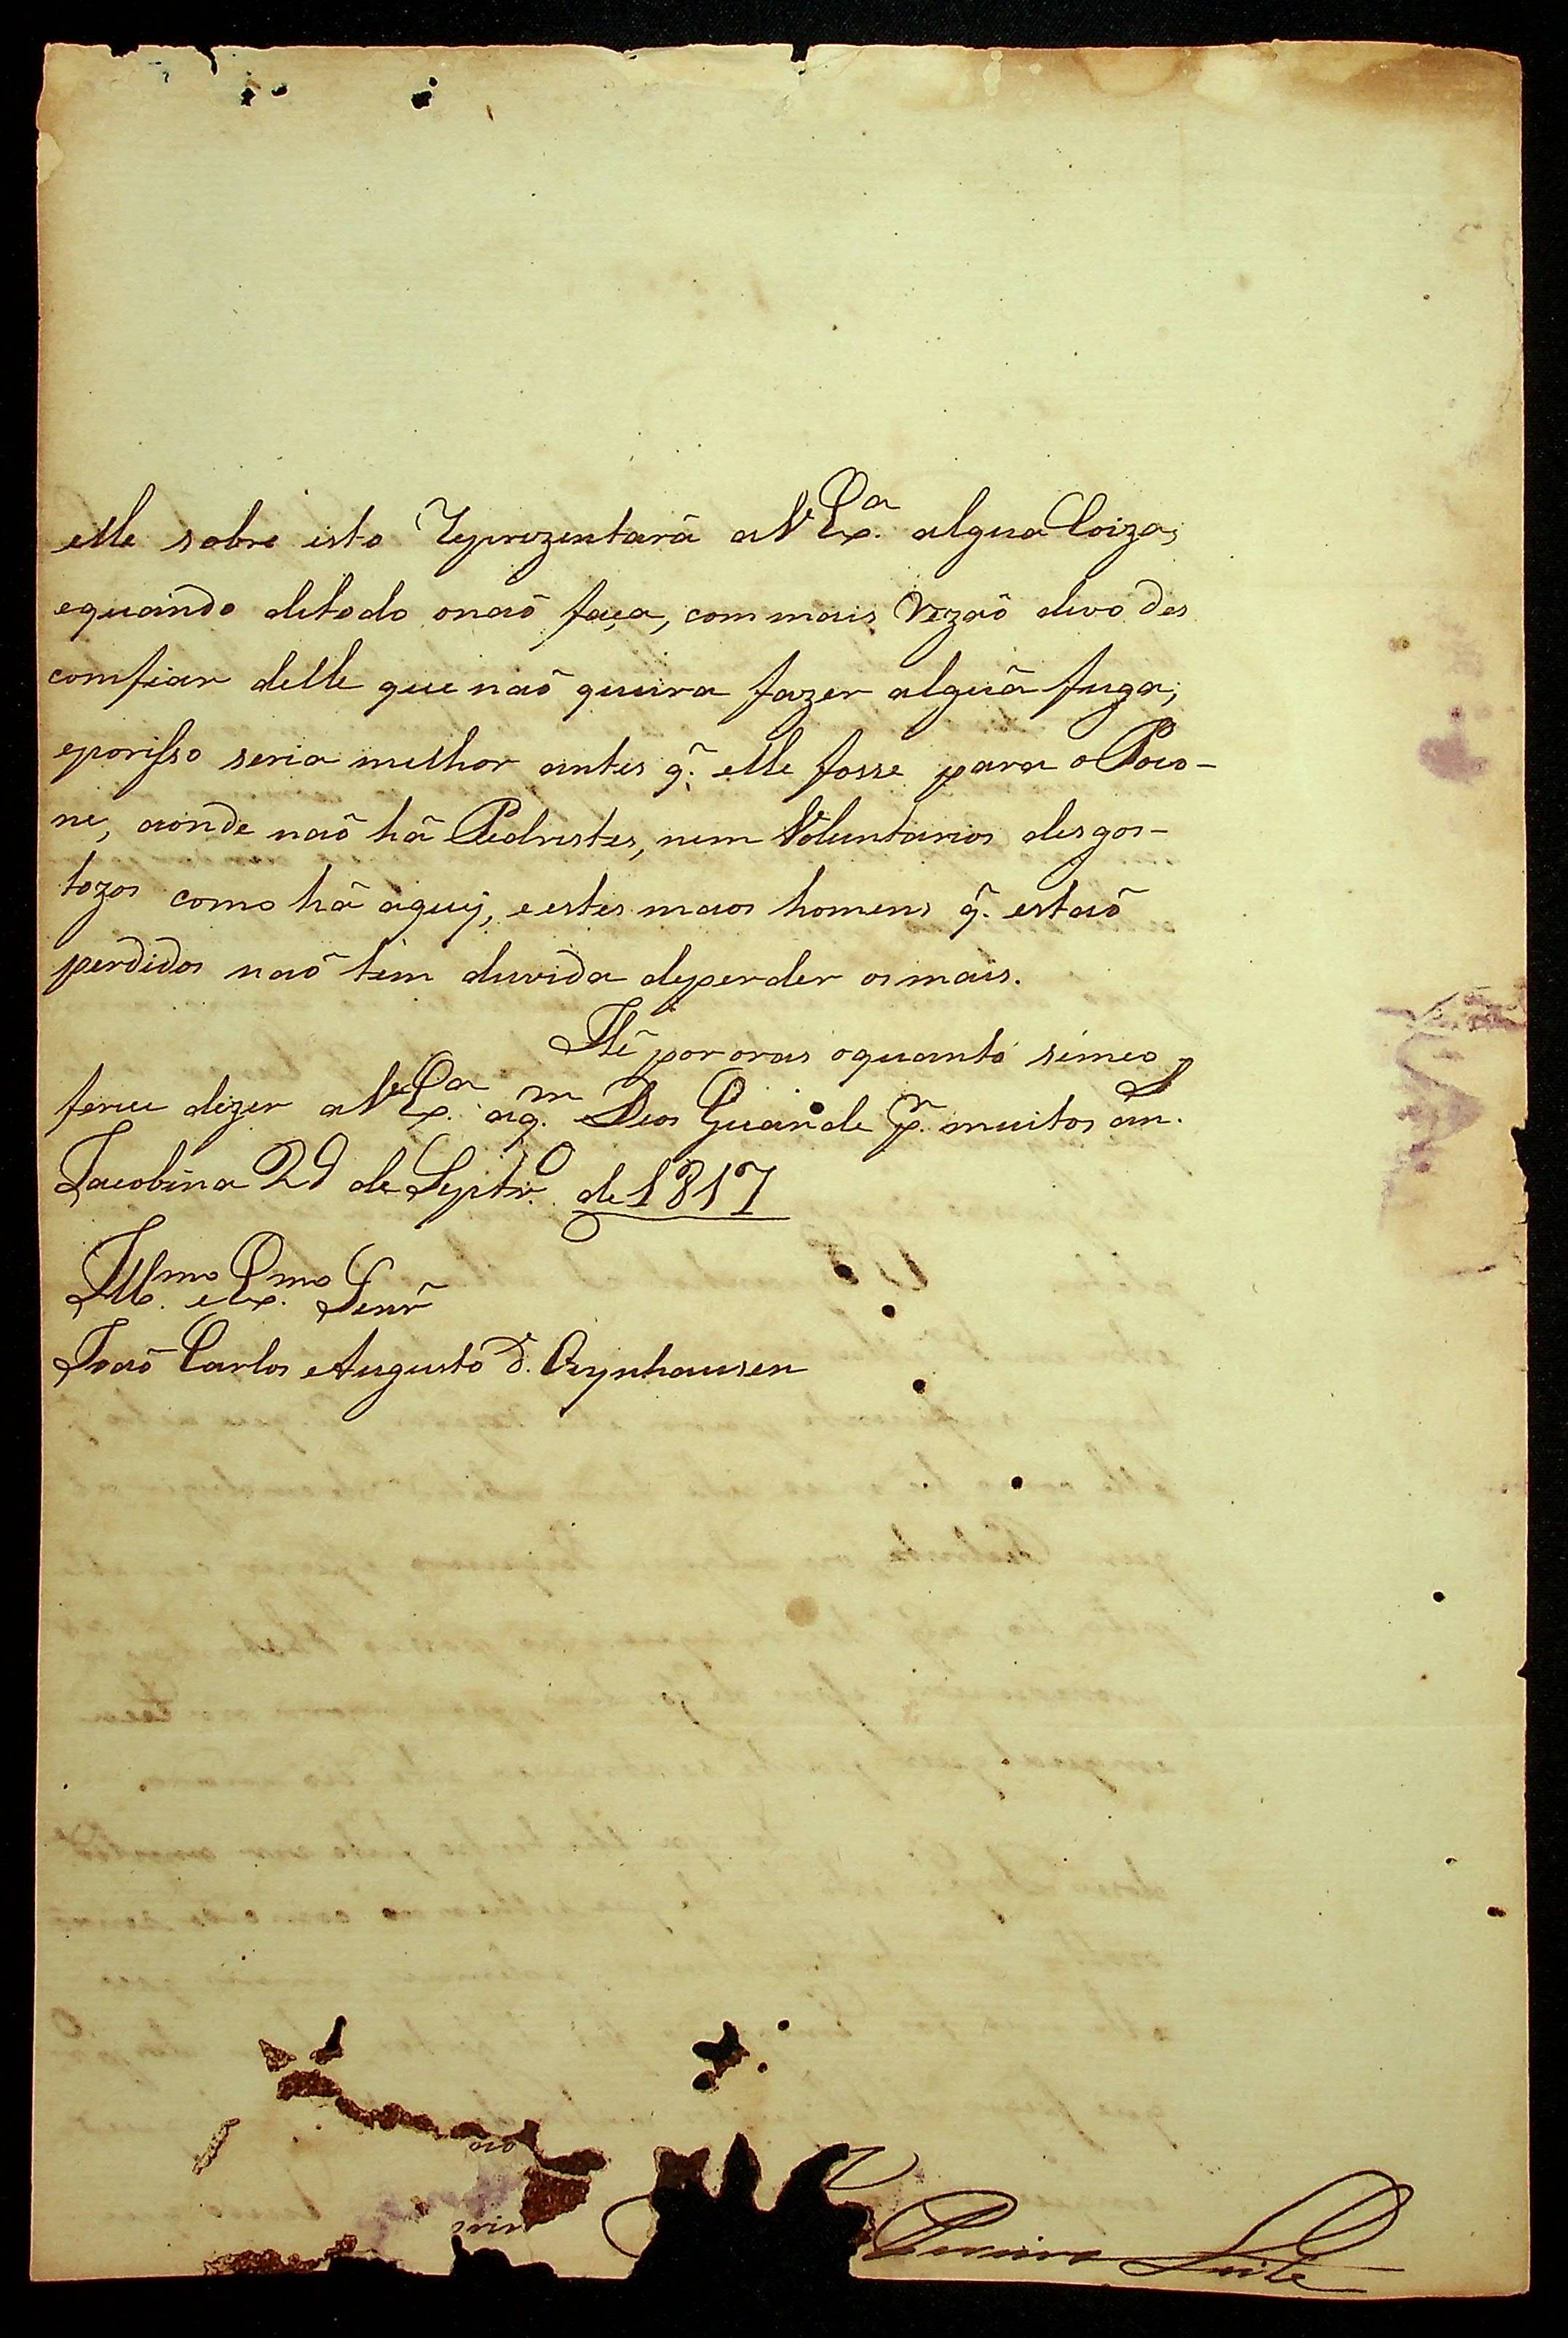 elle sobre isto Reprezentarâ aV Ex.ª algua Coiza,
equando detodo onaõ faça, commais Rezaõ devo des
comfiar delle que naõ queira fazer alguã fuga,
eporiſso seria melhor antes q̃. elle fosse para o Poco-
ne, aonde naõ hâ Pedrestes, nem Voluntarios desgos-
tozos como hâ aquy, eestes maos homens q̃. estaõ
perdidos naõ tem duvida deperder osmais.
Hê por oras oquanto semeo
ferece dizer aV Ex.ª aq.m Deos Guarde p.r muitos an.s
Jacobina 29 de Septr.º de 1817
Ill.mo e Ex.mo Senr̃
Joaõ Carlos Augusto d'. Oeynhausen
Pereira Leite